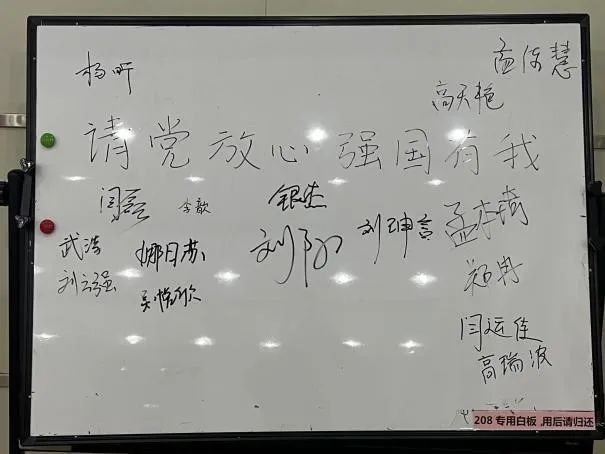 杨昕
孟保慧
高天艳
请党放心 强国有我
闫磊
李歆
银杰
武浩
娜日苏
刘阳
刘珅言
刘云强
吴悦欣
郑冉
闫运佳
高瑞波
208 专用白板,用后请归还